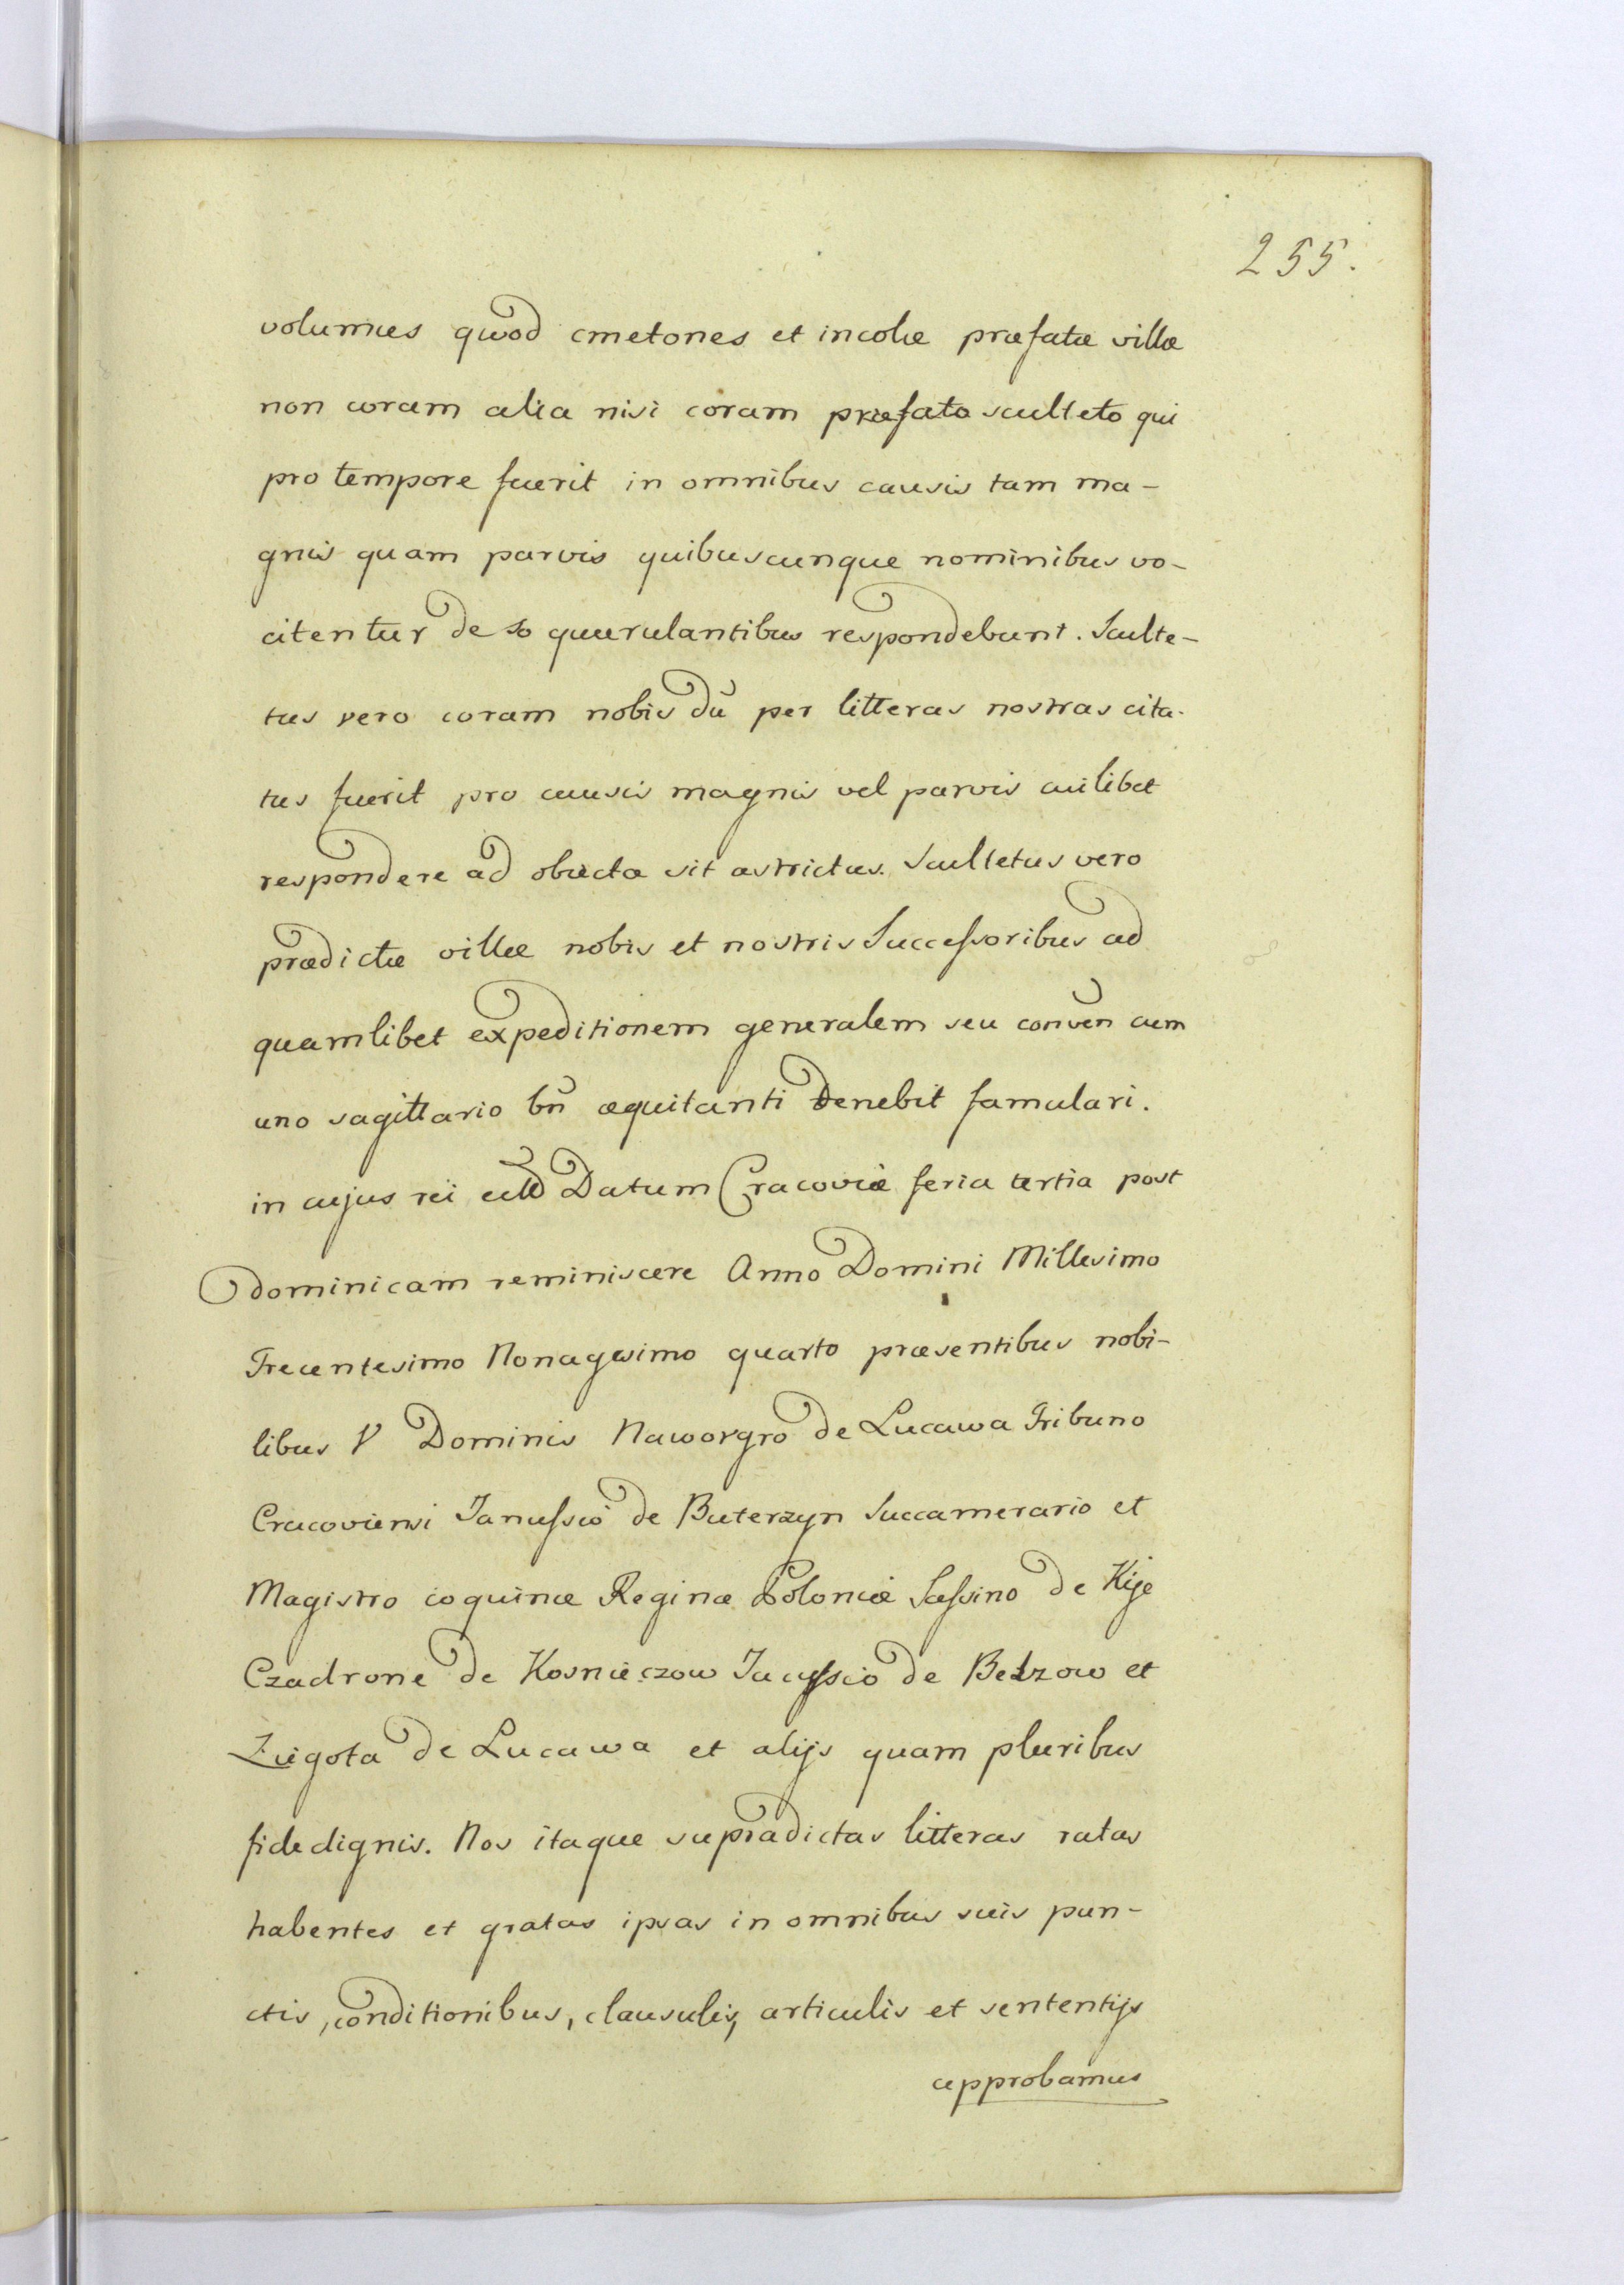 255.
volumus quod cmetones et incolæ præfatæ villæ
non coram alia nisi coram præfato sculteto qui
pro tempore fuerit in omnibus causis tam ma-
gnis quam parvis quibuscunque nominibus vo-
citentur de so quærulantibus respondebunt. Sculte-
tus vero coram nobis dū per litteras nostras cita-
tus fuerit pro causis magnis vel parvis cuilibet
respondere ad obiecta sit astrictus. Scultetus vero
prædictæ villæ nobis et nostris Successoribus ad
quamlibet expeditionem generalem seu conven cum
uno sagittario bn̄ æquitanti denebit famulari.
in cujus rei Datum Cracoviæ feria tertia post
dominicam reminiscere Anno Domini Millesimo
Trecentesimo Nonagesimo quarto præsentibus nobi-
libus V Dominis Naworgro de Lucawa Tribuno
Cracoviensi Janussio de Buterzyn Succamerario et
Magistro coquinæ Reginæ Poloniæ Sassino de Kije
Czadrone de Kosnieczow Jacussio de Belzow et
Zegota de Lucawa et alijs quam pluribus
fide dignis. Nos itaque supradictas litteras ratas
habentes et gratas ipsas in omnibus suis pun-
ctis, conditionibus, clausulis, articulis et sententijs
approbamus